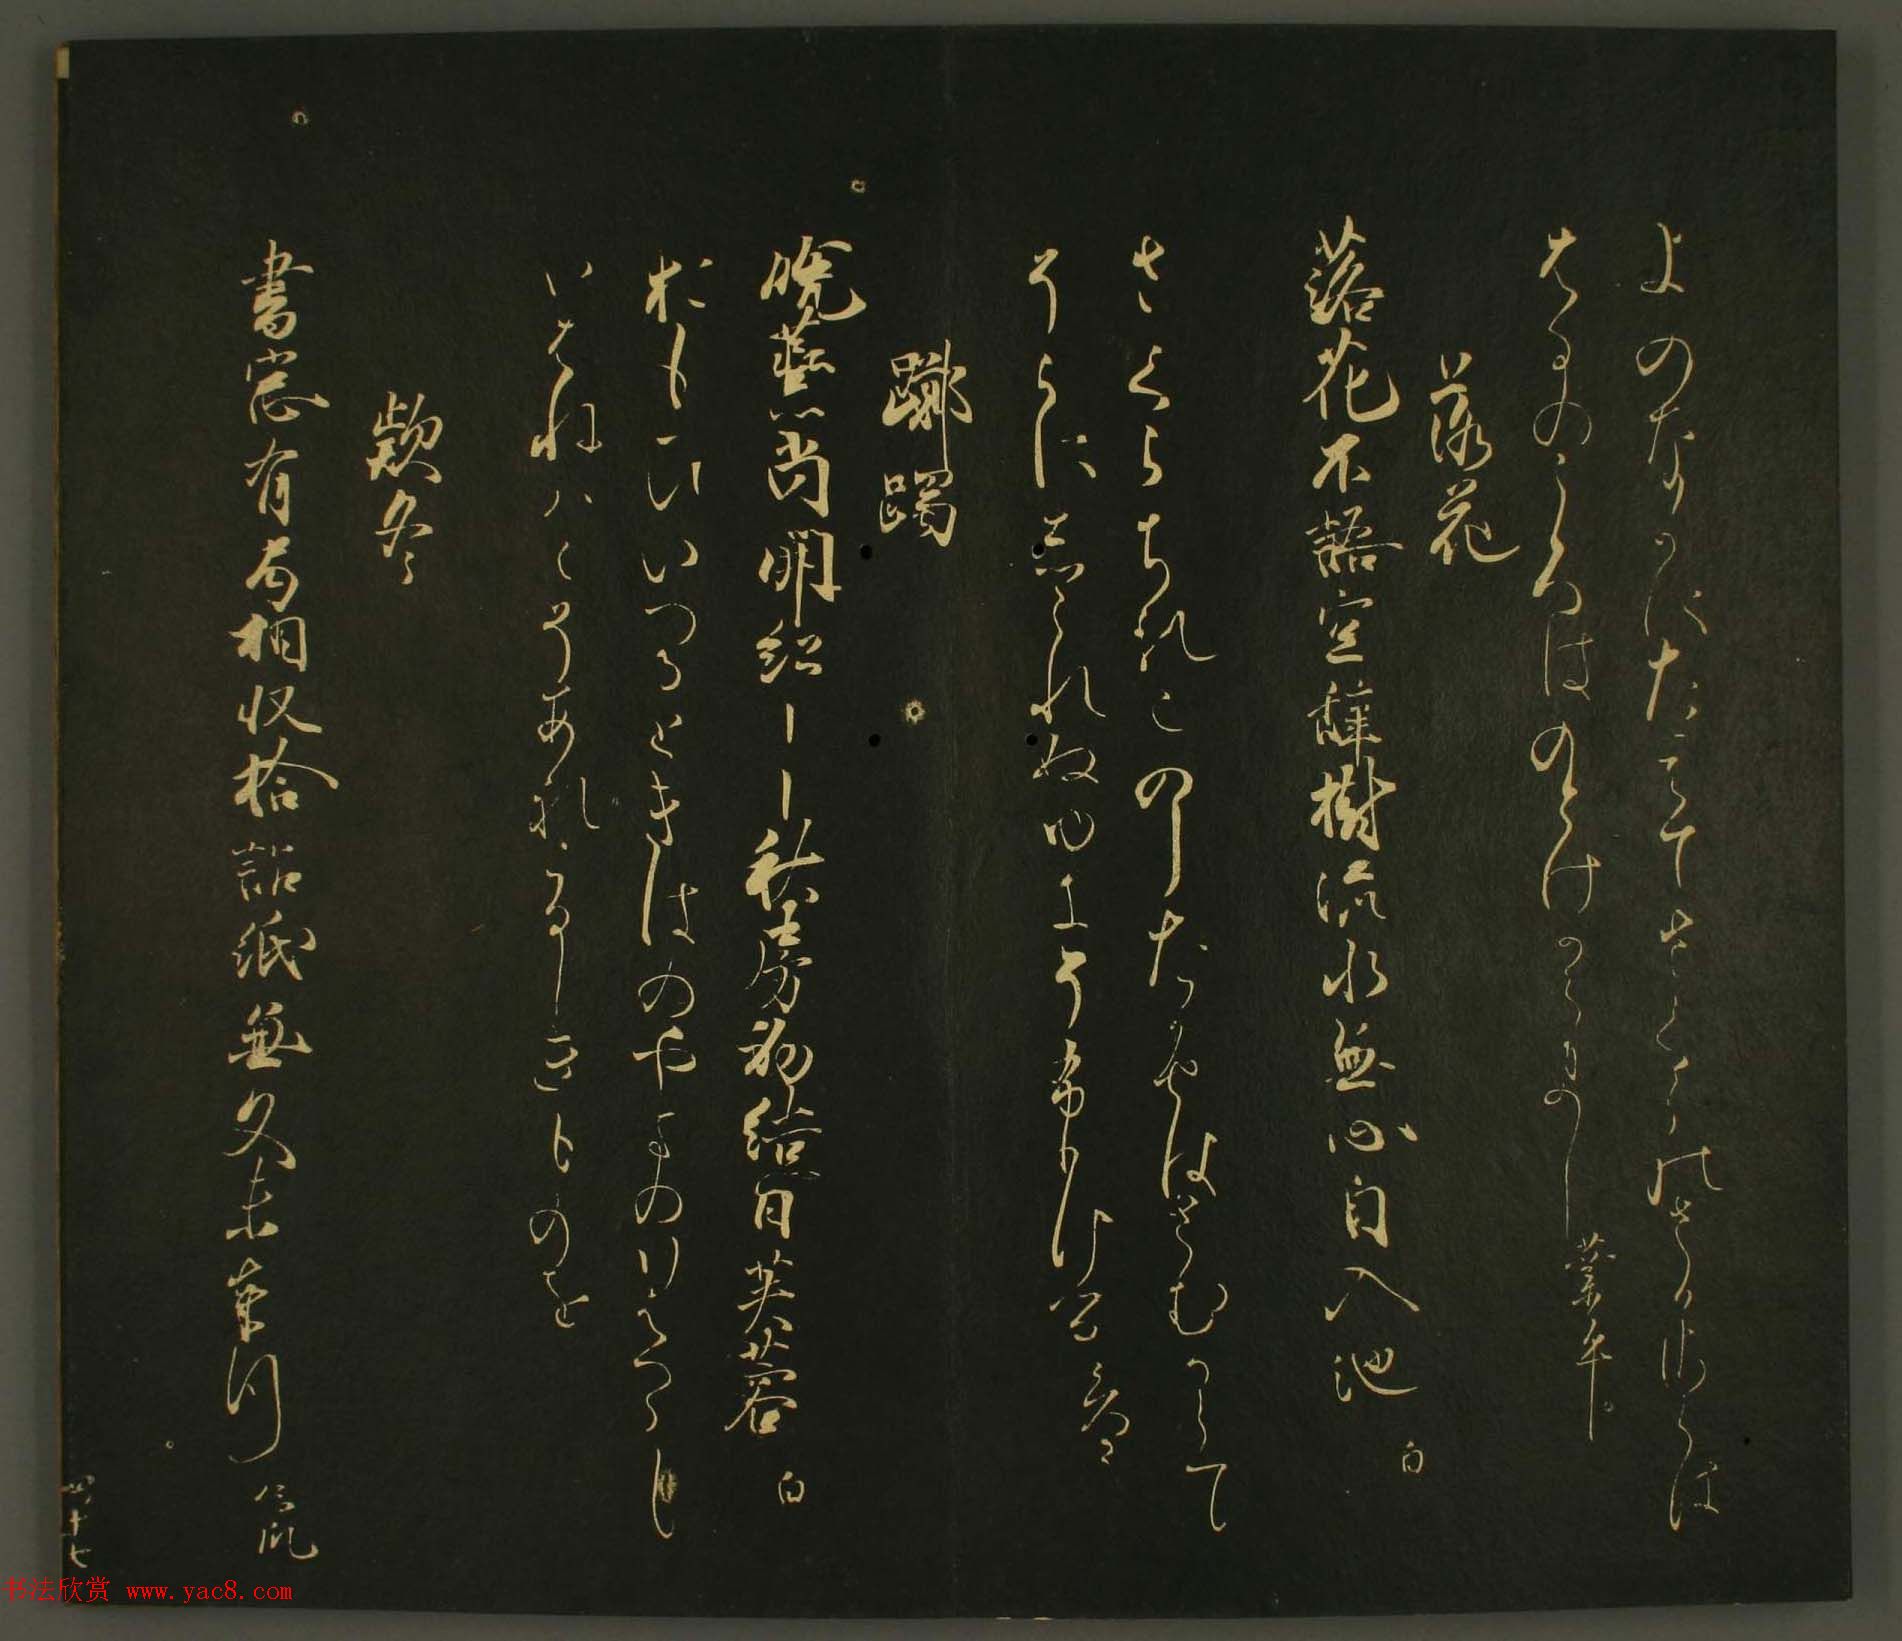 よのなかにたえてさくらのなかりせば
はるのこゝろはのとけからまし 業平
落花
落花不語空辞樹流水無心自入池 白
さくらちるこのしたかせはさむからて
そらにしられぬゆきそふりける 貫之
躑躅
晩蘂尚開紅躑躅秋房初結白芙蓉 白
おもひいつるときはのやまのいはつゝし
いはねはこそあれこひしきものを
款冬
書窓有巻相収拾詔紙無文未奉行
四十七
书法欣赏 www.yac8.com